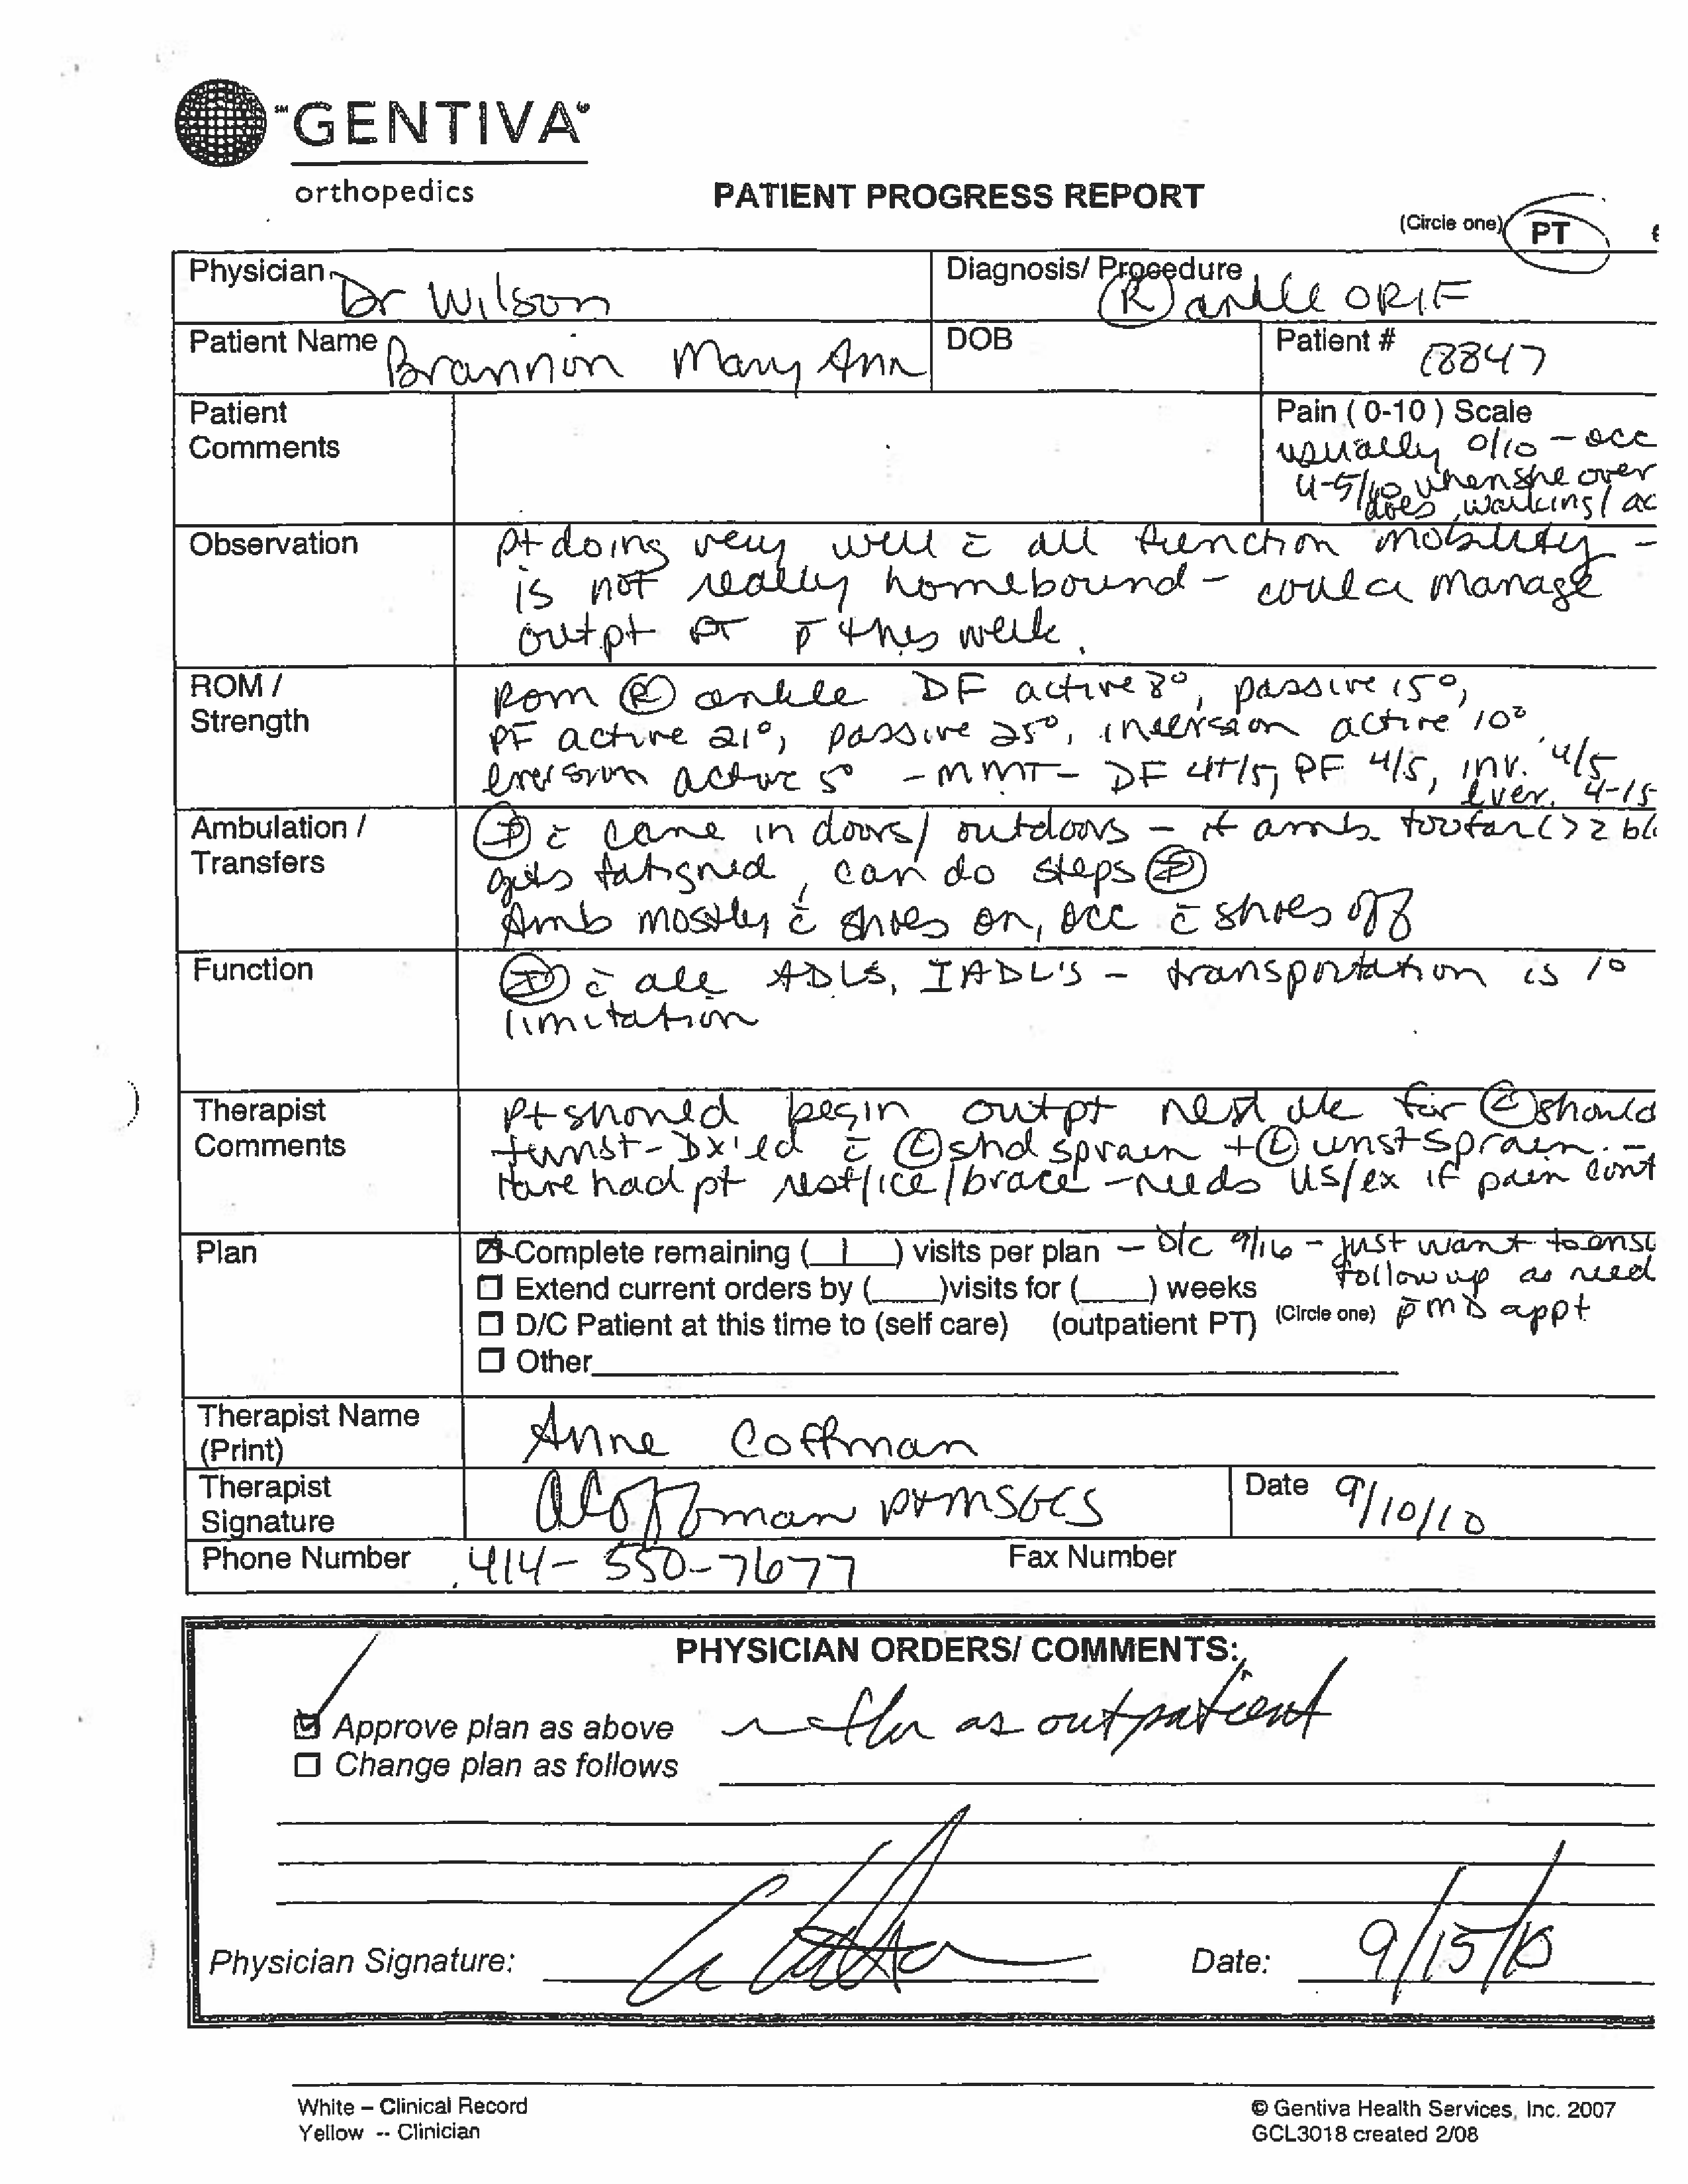 GENTIVA
orthopedics
PATIENT PROGRESS REPORT
(Circle one) PT
Physician Dr Wilson
Diagnosis/ Procedure (R) ankle ORIF
Patient Name Brannon Mary Ann
DOB
Patient # 18847
Patient
Comments
Pain ( 0-10 ) Scale
usually 0/10 - occ
4-5/10 when she over
does walking/ ac
Observation
Pt doing very well c̄ all function mobility -
is not really homebound - could manage
outpt PT p̄ this week.
ROM /
Strength
Rom (R) ankle DF active 8°, passive 15°,
PF active 21°, passive 25°, inversion active 10°,
eversion active 5° - MMT - DF 4+/5, PF 4/5, inv. 4/5
ever. 4-/5
Ambulation /
Transfers
(I) c̄ cane indoors/ outdoors - if amb too far (> 2 bl
gets fatigued, can do steps (I)
Amb mostly c̄ shoes on, occ c̄ shoes off
Function
(I) c̄ all ADLS, IADL'S - transportation is 1°
limitation
Therapist
Comments
Pt should begin outpt next wk for (L) should
+ wrist - Dx'ed c̄ (L) shd sprain + (L) wrist sprain. -
Have had pt rest/ice/brace - needs US/ex if pain cont
Plan
☒ Complete remaining ( 1 ) visits per plan - D/C 9/16 - just want to ensu
follow up as need
☐ Extend current orders by (___)visits for (___) weeks
☐ D/C Patient at this time to (self care) (outpatient PT) (Circle one) p̄ MD appt
☐ Other
Therapist Name
(Print)
Anne Coffman
Therapist
Signature
ACoffman PT MS GCS
Date 9/10/10
Phone Number 414-550-7677
Fax Number
PHYSICIAN ORDERS/ COMMENTS:
☑ Approve plan as above as outpatient
☐ Change plan as follows
Physician Signature:
Date: 9/15/10
White – Clinical Record
Yellow -- Clinician
© Gentiva Health Services, Inc. 2007
GCL3018 created 2/08